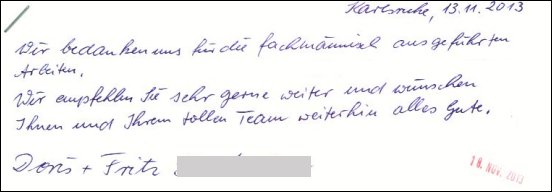 Karlsruhe, 13.11.2013
Wir bedanken uns für die fachmännisch ausgeführten
Arbeiten.
Wir empfehlen Sie sehr gerne weiter und wünschen
Ihnen und Ihrem tollen Team weiterhin alles Gute.
Doris + Fritz
18. NOV. 2013